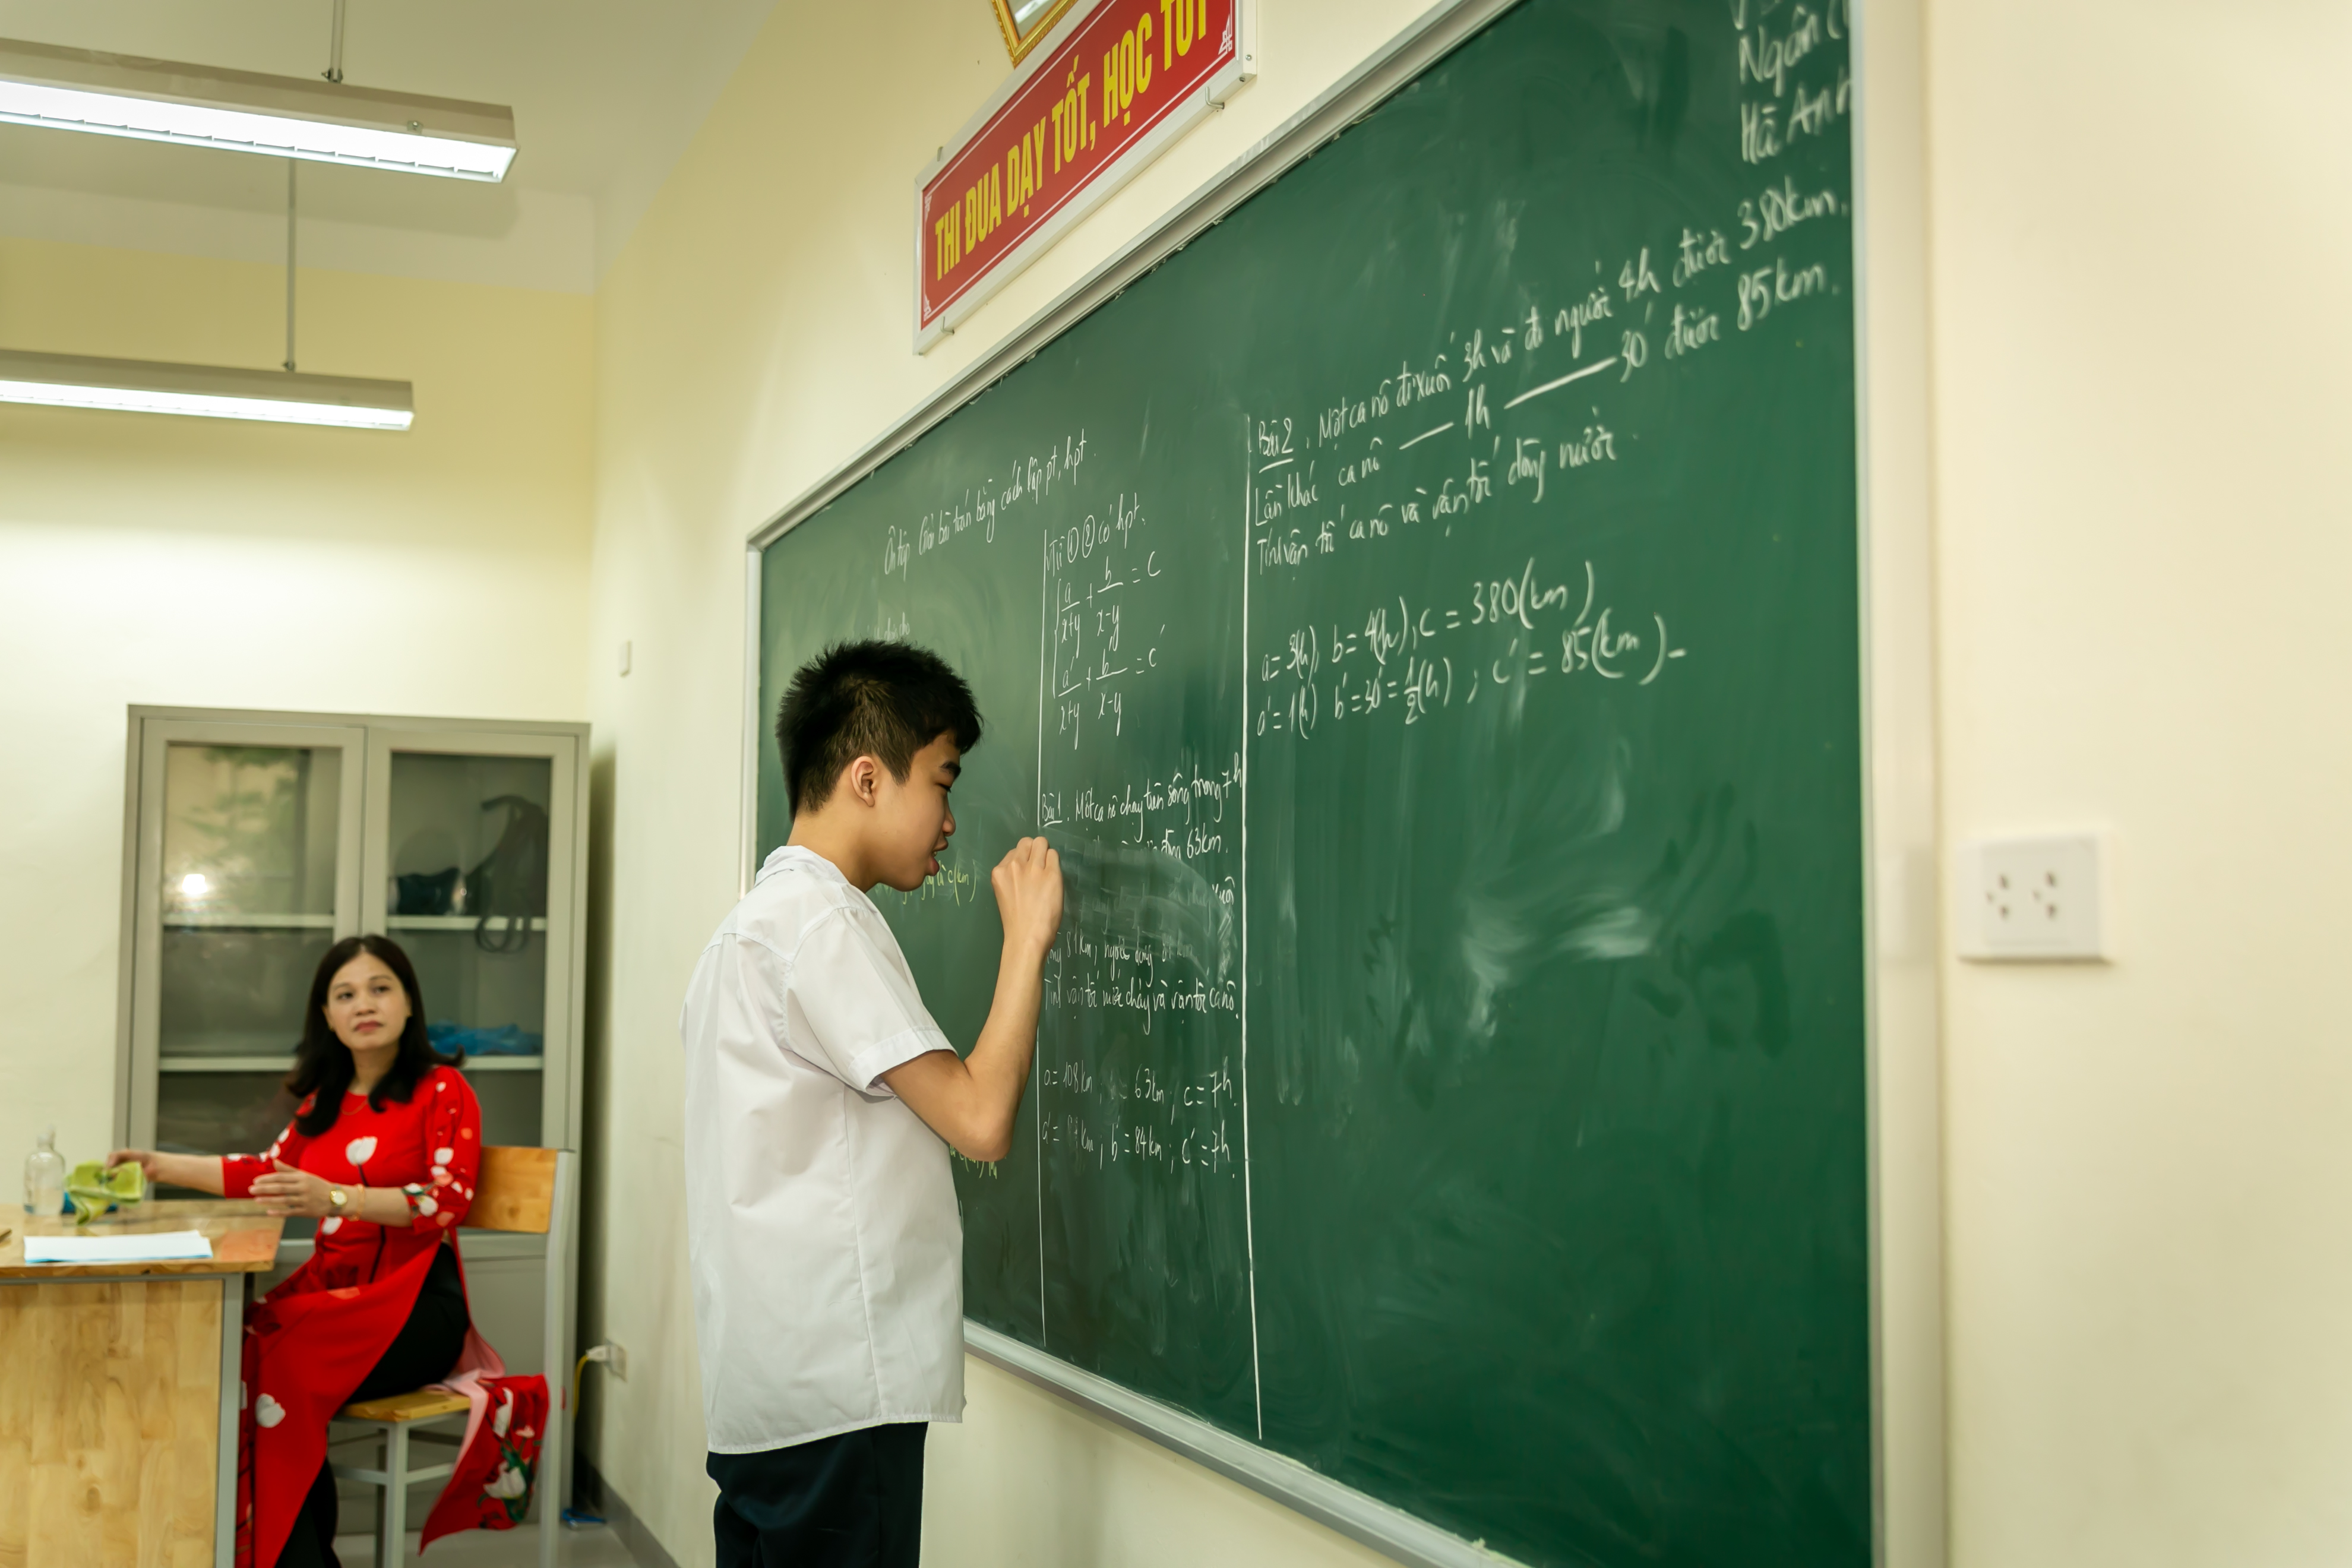 THI ĐUA DẠY TỐT, HỌC TỐT
Ngân
Hà Anh
Ôn tập Giải bài toán bằng cách lập pt, hpt.
Từ ① ② có hpt.
a/(x+y) + b/(x-y) = c
a'/(x+y) + b'/(x-y) = c'
c(km)
Bài 1. Một ca nô chạy trên sông trong 7h
63km.
km, ngược dòng
Tính vận tốc nước chảy và vận tốc ca nô.
a = 108km 63km; c = 7h.
a' = km; b' = 84km; c' = 7h.
Bài 2. Một ca nô đi xuôi 3h và đi ngược 4h được 380km.
Lần khác ca nô — 1h — 30' được 85km.
Tính vận tốc ca nô và vận tốc dòng nước.
a = 3(h), b = 4(h), c = 380(km)
a' = 1(h) b' = 30' = 1/2(h); c' = 85(km).